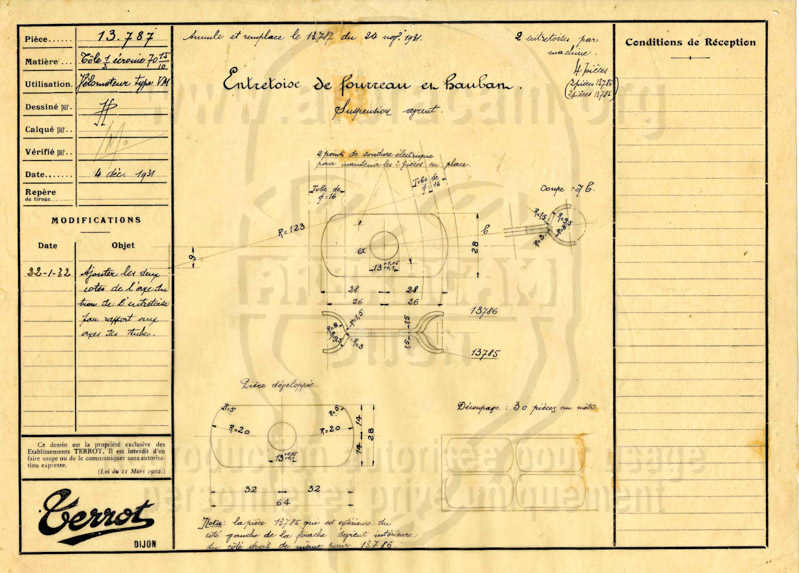 Pièce...... 13.787
Matière... Tôle 1/2 écrouie 70 15/10
Utilisation. Vélomoteur type VM
Dessiné par.
Calqué par..
Vérifié par...
Date....... 4 déc. 1931
Repère
de tirage.......
MODIFICATIONS
Date Objet
22-1-32 Ajouter les deux
cotes de l'axe du
trou de l'entretoise
par rapport aux
axes des tubes.
Ce dessin est la propriété exclusive des
Etablissements TERROT. Il est interdit d'en
faire usage ou de le communiquer sans autorisation
expresse.
(Loi du 11 Mars 1902.)
Terrot
DIJON
Annule et remplace le 13787 du 24 nov. 1931.
2 entretoises par
machine.
4 pièces
(2 pièces 13785
2 pièces 13786)
Entretoise de fourreau et hauban.
Suspension avant.
2 points de soudure électrique
pour maintenir les 2 pièces en place
Tube de
d=16
Tube de
d=16
Coupe
R=123
9
28
13
28 28
26 26
13786
13785
R=3
Pièce développée.
R=5 R=5
R=20 R=20
14
14
28
13
32 32
64
Découpage : 30 pièces au mètre
Nota: la pièce 13785 qui est extérieure du
côté gauche de la fourche devient intérieure
du côté droit de même pour 13786.
Conditions de Réception
www.artetacam.org
ARTETACAM
DIJON
reproduction autorisée pour usage
personnel et privé uniquement